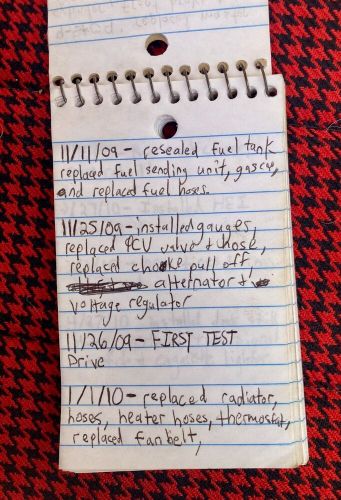 11/11/09 - resealed fuel tank
replaced fuel sending unit, gas cap,
and replaced fuel hoses.
11/25/09 - installed gauges,
replaced PCV valve & hose,
replaced choke pull off,
alternator &
voltage regulator
11/26/09 - FIRST TEST
Drive
1/1/10 - replaced radiator,
hoses, heater hoses, thermostat,
replaced fan belt,